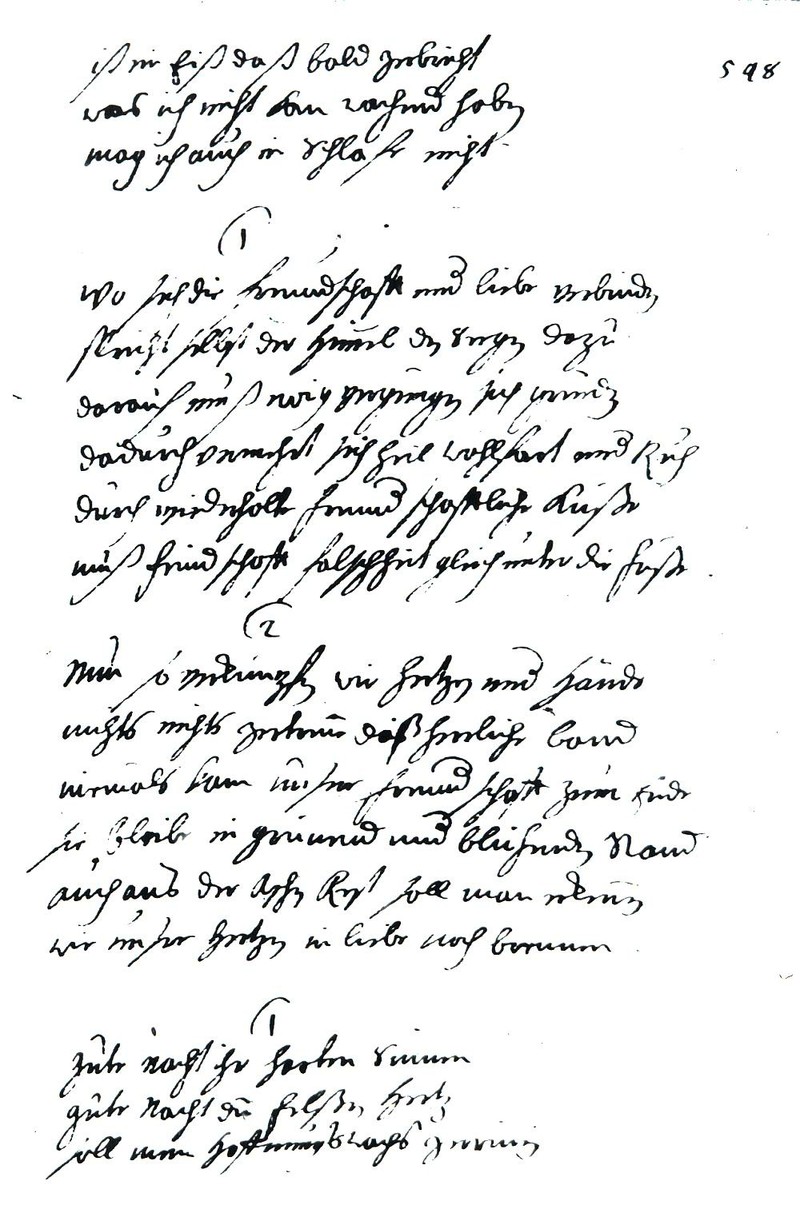 598
ist ein Eiß daß bald zerbricht
was ich nicht kan wachend haben
mag ich auch in Schlafe nicht
1
Wo sich die freundschafft und liebe verbinden
spricht selbst der Himel den Seegen dazu
daraus muß ewig vergnügen sich gründen
dadurch vermehrt sich heil wohlfart und Ruh
durch wiederholte freundschafftliche Küße
muß feindschafft falschheit gleich unter die füße
2
Nun so verknüpffen wir hertzen und Hände
nichts nichts zertrenne diß herliche band
niemals kom unser freundschafft zum Ende
sie bleibe in grünend und blühenden Stand
auch aus der Aschen Rest soll man erkennen
wie unser hertzen in liebe noch brennen
1
gute Nacht ihr harten Sinnen
gute Nacht du felßen hertz
soll mein Hoffnungs wachs zerrinnen